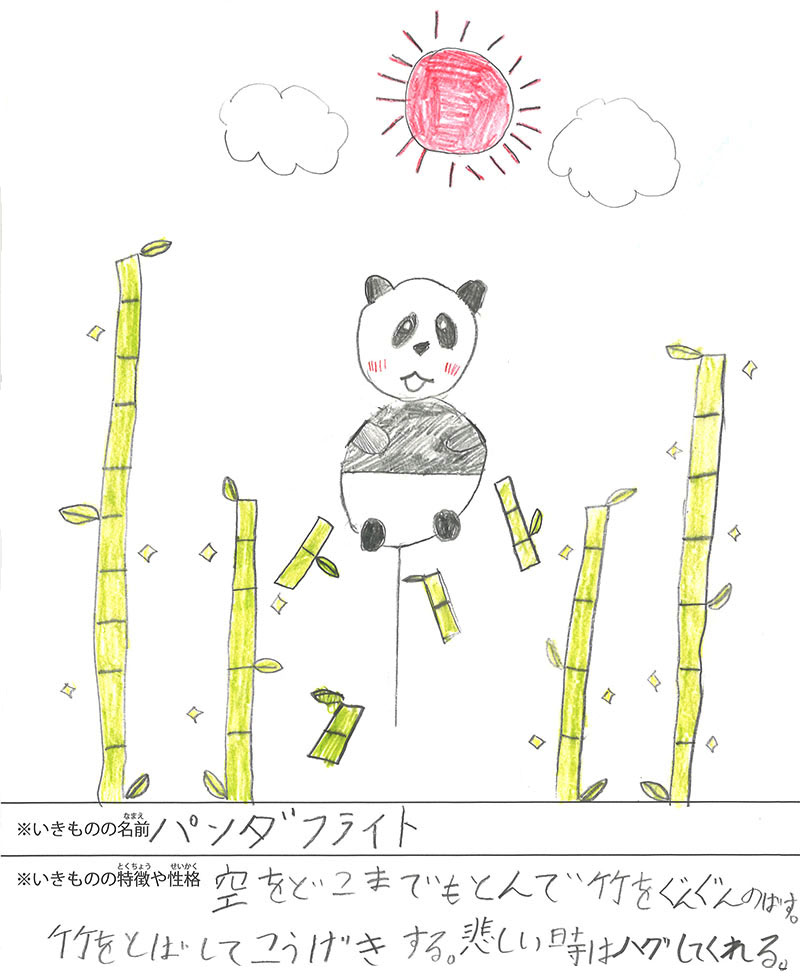 ※いきものの名前 パンダフライト
※いきものの特徴や性格 空をどこまでもとんで竹をぐんぐんのばす。
竹をとばしてこうげきする。悲しい時はハグしてくれる。